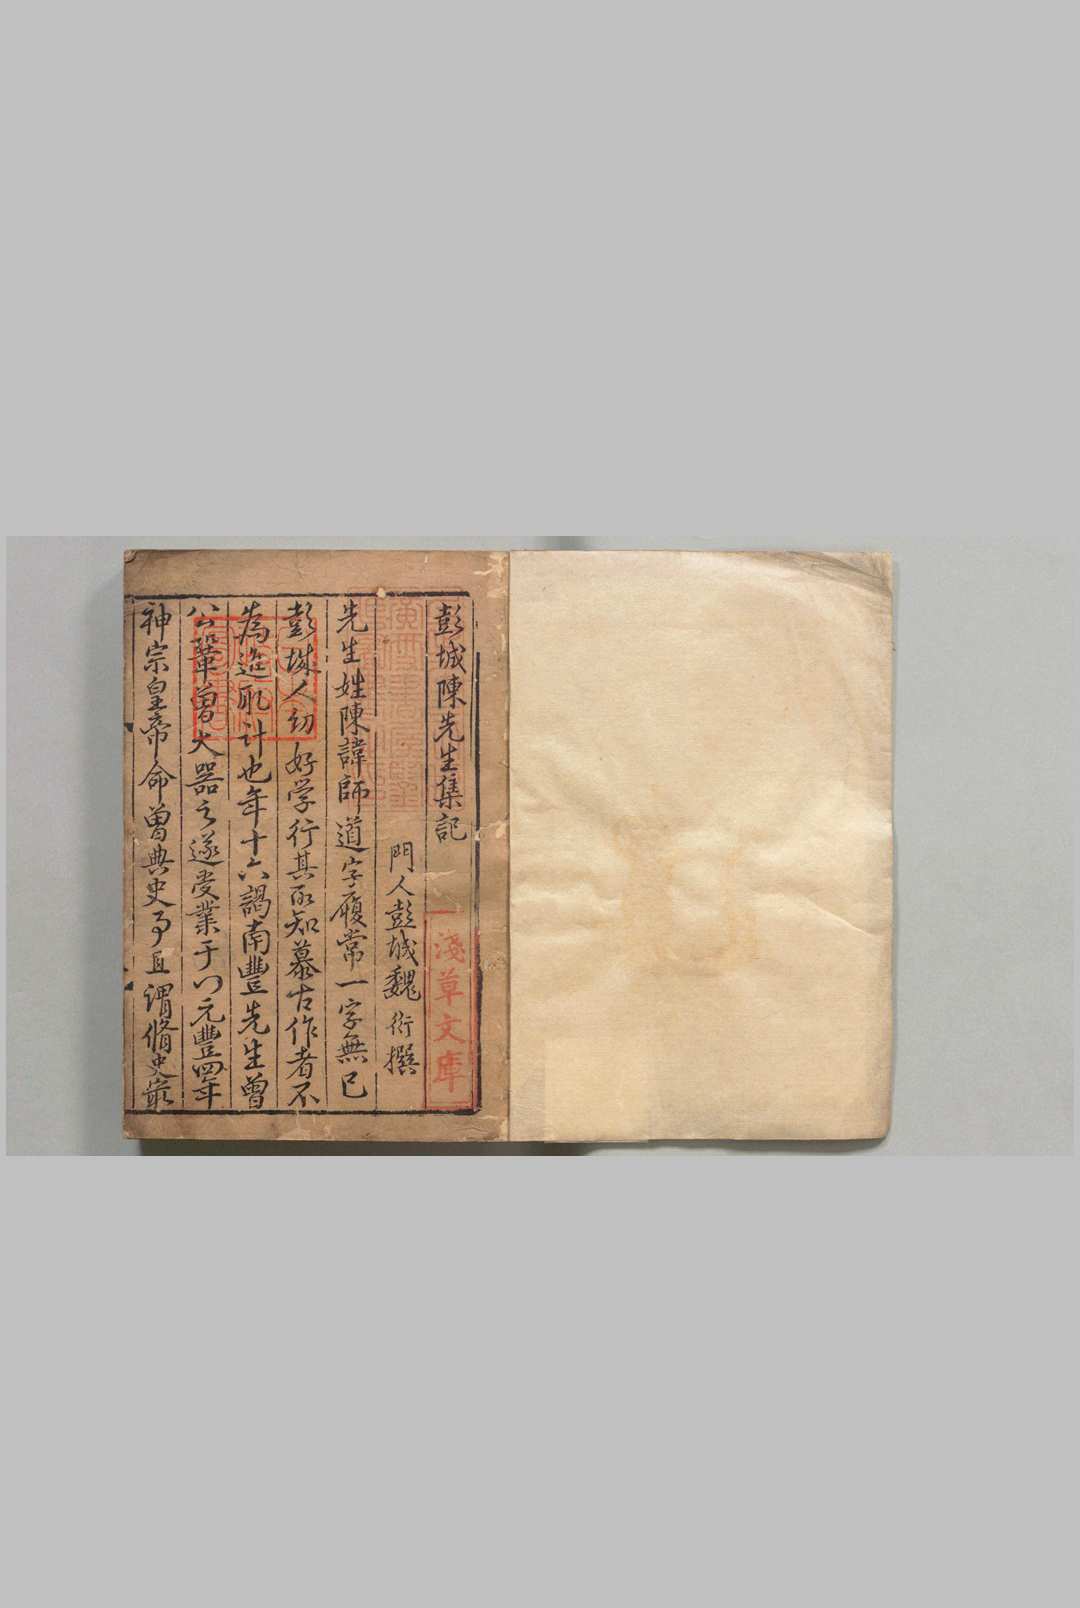 彭城陳先生集記
門人彭城魏衍撰
先生姓陳諱師道字履常一字無已
彭城人幼好学行其所知慕古作者不
為進取計也年十六謁南豐先生曾
公鞏曾大器之遂受業于门元豐四年
神宗皇帝命曾典史事且謂脩史最
淺草文庫